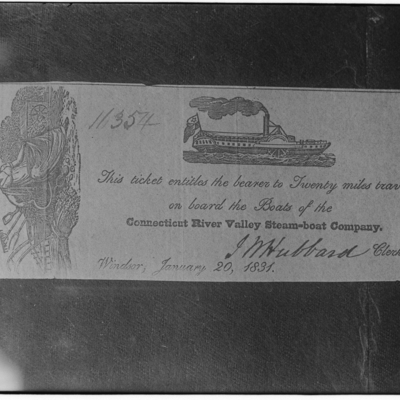 11354
This ticket entitles the bearer to Twenty miles trav
on board the Boats of the
Connecticut River Valley Steam-boat Company.
J W Hubbard Clerk
Windsor, January 20, 1831.